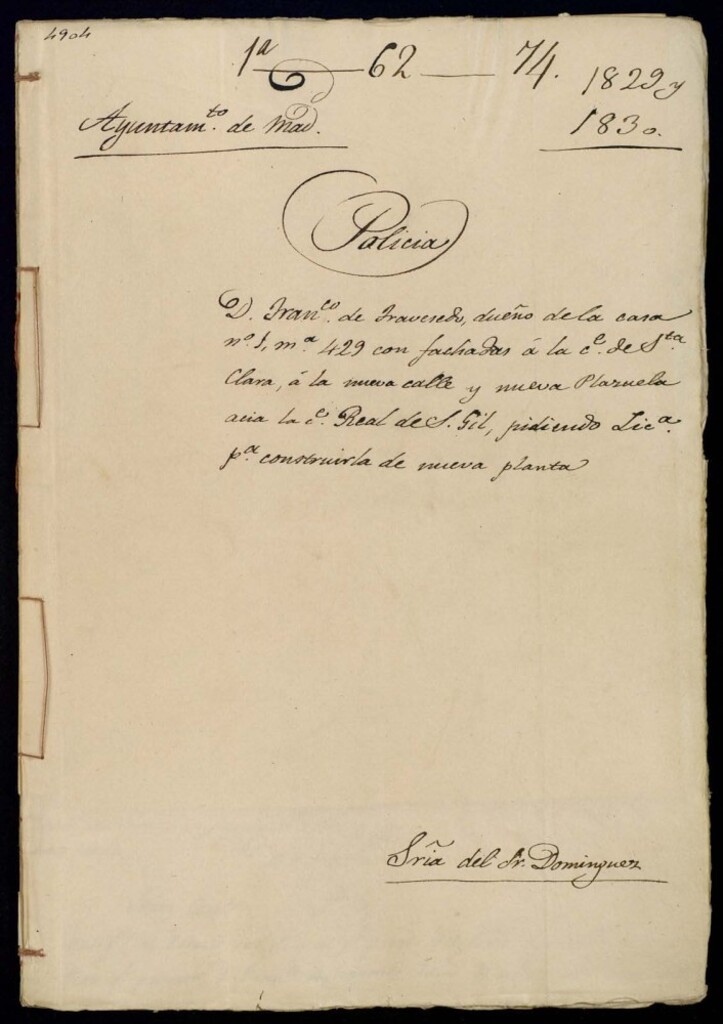 4904
1ª — 62 — 74.
1829 y
1830.
Ayuntam.to de Mad.
Policia
D. Fran.co de Travesedo, dueño de la casa
n.º 1, m.ª 429 con fachadas á la c.e de S.ta
Clara, á la nueva calle y nueva Plazuela
acia la c.e Real de S. Gil, pidiendo Lic.ª
p.ª construirla de nueva planta
Sría del Sr. Dominguez